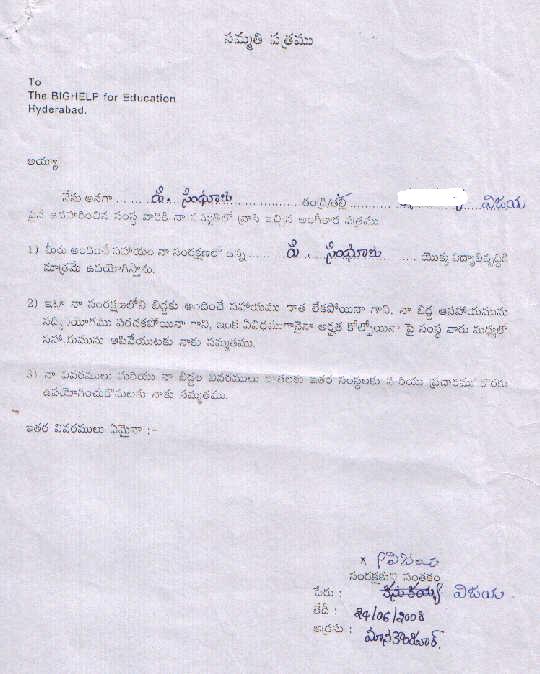 సమ్మతి పత్రము
To
The BIGHELP for Education
Hyderabad.
అయ్యా
నేను అనగా ...... వి. సంఘాల ...... తండ్రి/తల్లి ...... విజయ
పైన ఉదహరించిన సంస్థ వారికి నా సమ్మతితో వ్రాసి ఇచ్చిన అంగీకార పత్రము
1) మీరు అందించే సహాయం నా సంరక్షణలో ఉన్న ...... వి. సంఘాల ...... యొక్క విద్యాభివృద్ధికి
మాత్రమే ఉపయోగిస్తాను.
2) ఇటా నా సంరక్షణలోని బిడ్డకు అందించే సహాయము రాత లేకపోయినా గాని, నా బిడ్డ ఆసహాయమును
సద్వినియోగము పరచకపోయినా గాని, ఇంకే విధముగానైనా అర్హత కోల్పోయినా పై సంస్థ వారు మధ్యలో
సహాయమును ఆపివేయుటకు నాకు సమ్మతము.
3) నా వివరములు మరియు నా బిడ్డల వివరములు ఇతర సంస్థలకు మరియు ప్రచారము కొరకు
ఉపయోగించుకొనుటకు నాకు సమ్మతము.
ఇతర వివరములు ఏమైనా :-
x విజయ
సంరక్షకుని సంతకం
పేరు : విజయ
తేదీ : 24/06/2008
ఊరు :